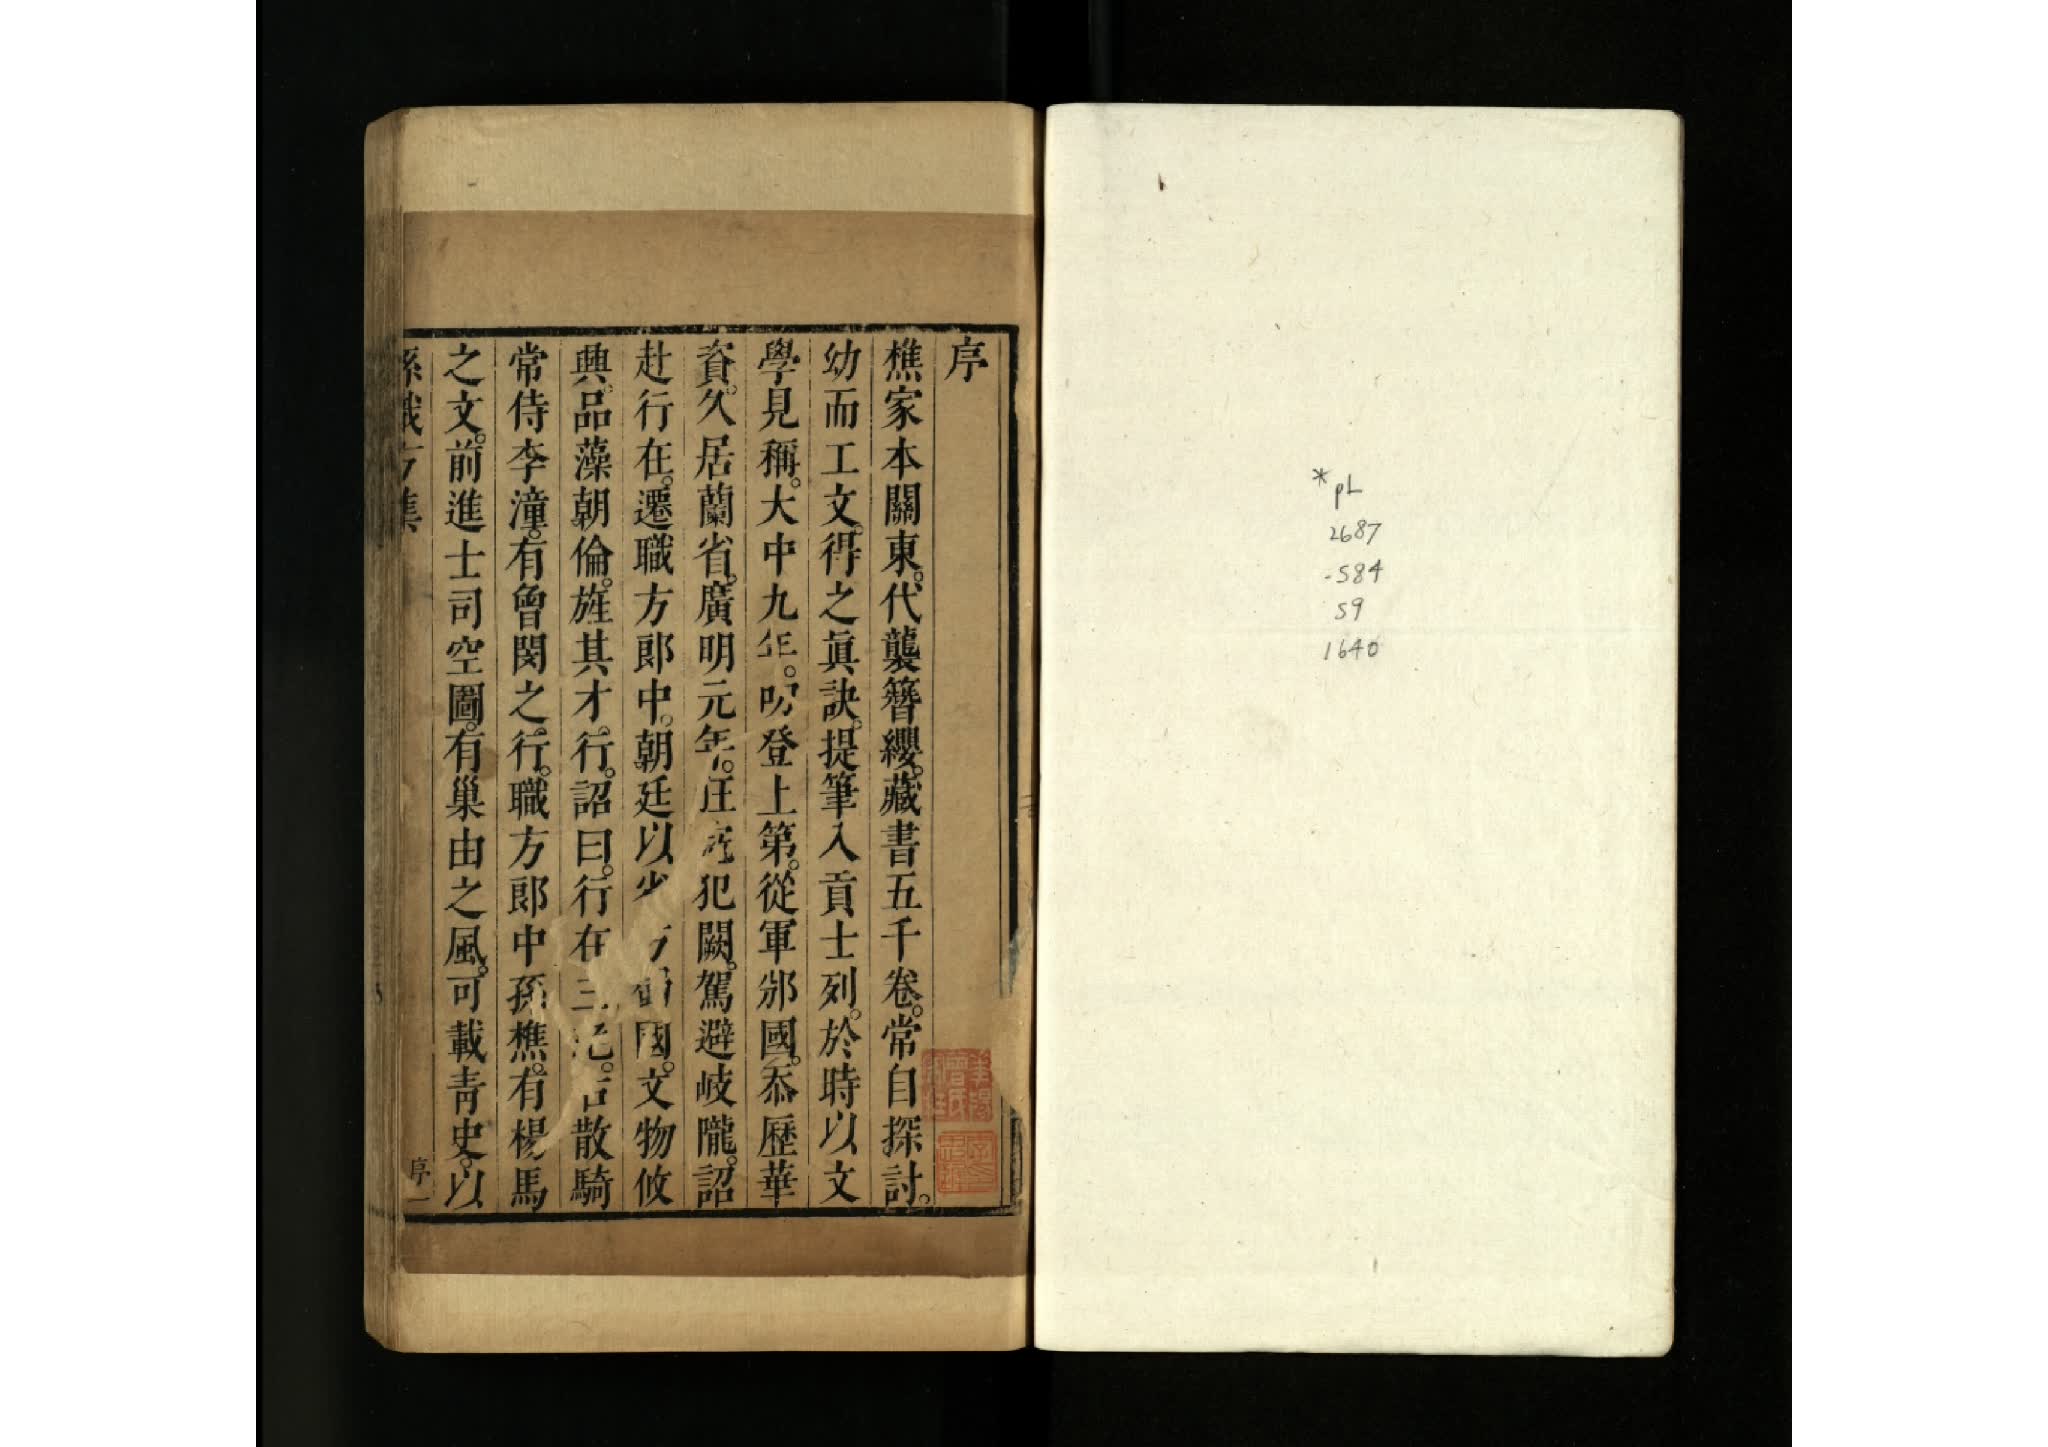 * pL
2687
-584
59
1640
序
樵家本關東。代襲簪纓。藏書五千卷。常自探討。
幼而工文。得之眞訣。提筆入貢士列。於時以文
學見稱。大中九年。叨登上第。從軍邠國。忝歷華
資。久居蘭省。廣明元年。狂寇犯闕。駕避岐隴。詔
赴行在。遷職方郎中。朝廷以省方蜀國。文物攸
興。品藻朝倫。旌其才行。詔曰。行在三絕。右散騎
常侍李潼。有曾閔之行。職方郎中孫樵。有楊馬
之文。前進士司空圖。有巢由之風。可載青史。以
孫職方集
序一